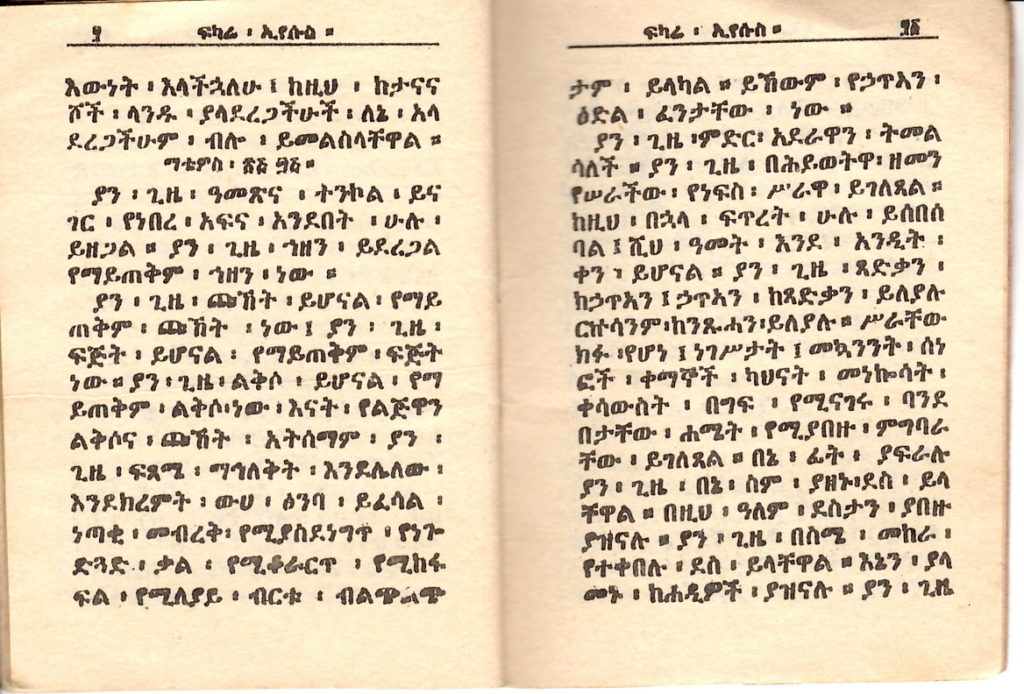 ፶ ፍካሬ ፡ ኢየሱስ ።
እውነት ፡ እላችኋለሁ ፤ ከዚህ ፡ ከታናና
ሾች ፡ ላንዱ ፡ ያላደረጋችሁች ፡ ለኔ ፡ አላ
ደረጋችሁም ፡ ብሎ ፡ ይመልስላቸዋል ።
ማቴዎስ ፡
ያን ፡ ጊዜ ፡ ዓመጽና ፡ ተንኮል ፡ ይና
ገር ፡ የነበረ ፡ አፍና ፡ አንደበት ፡ ሁሉ ፡
ይዘጋል ። ያን ፡ ጊዜ ፡ ኀዘን ፡ ይደረጋል
የማይጠቅም ፡ ኀዘን ፡ ነው ።
ያን ፡ ጊዜ ፡ ጩኸት ፡ ይሆናል ፡ የማይ
ጠቅም ፡ ጩኸት ፡ ነው ፤ ያን ፡ ጊዜ ፡
ፍጅት ፡ ይሆናል ፡ የማይጠቅም ፡ ፍጅት
ነው ። ያን ፡ ጊዜ ፡ ልቅሶ ፡ ይሆናል ፡ የማ
ይጠቅም ፡ ልቅሶ ፡ ነው ፡ እናት ፡ የልጅዋን
ልቅሶና ፡ ጩኸት ፡ አትሰማም ፡ ያን ፡
ጊዜ ፡ ፍጻሜ ፡ ማኅለቅት ፡ እንደሌለው ፡
እንደክረምት ፡ ውሀ ፡ ዕንባ ፡ ይፈሳል ፡
ነጣቂ ፡ መብረቅ ፡ የሚያስደነግጥ ፡ የነጐ
ድጓድ ፡ ቃል ፡ የሚቆራርጥ ፡ የሚከፋ
ፍል ፡ የሚለያይ ፡ ብርቱ ፡ ብልጭልጭ
ፍካሬ ፡ ኢየሱስ ። ፶፩
ታም ፡ ይላካል ። ይኸውም ፡ የኃጥኣን ፡
ዕድል ፡ ፈንታቸው ፡ ነው ።
ያን ፡ ጊዜ ፡ ምድር ፡ አደራዋን ፡ ትመል
ሳለች ። ያን ፡ ጊዜ ፡ በሕይወትዋ ፡ ዘመን
የሠራችው ፡ የነፍስ ፡ ሥራዋ ፡ ይገለጻል ።
ከዚህ ፡ በኋላ ፡ ፍጥረት ፡ ሁሉ ፡ ይሰበሰ
ባል ፤ ሺህ ፡ ዓመት ፡ እንደ ፡ አንዲት ፡
ቀን ፡ ይሆናል ። ያን ፡ ጊዜ ፡ ጻድቃን ፡
ከኃጥኣን ፤ ኃጥኣን ፡ ከጻድቃን ፡ ይለያሉ
ርኩሳንም ፡ ከንጹሓን ፡ ይለያሉ ። ሥራቸው
ክፉ ፡ የሆነ ፤ ነገሥታት ፤ መኳንንት ፡ ሰነ
ፎች ፡ ቀማኞች ፡ ካህናት ፡ መነኰሳት ፡
ቀሳውስት ፡ በግፍ ፡ የሚናገሩ ፡ ባንደ
በታቸው ፡ ሐሜት ፡ የሚያበዙ ፡ ምግባራ
ቸው ፡ ይገለጻል ። በኔ ፡ ፊት ፡ ያፍራሉ
ያን ፡ ጊዜ ፡ በኔ ፡ ስም ፡ ያዘኑ ፡ ደስ ፡ ይላ
ቸዋል ። በዚህ ፡ ዓለም ፡ ደስታን ፡ ያበዙ
ያዝናሉ ። ያን ፡ ጊዜ ፡ በስሜ ፡ መከራ ፡
የተቀበሉ ፡ ደስ ፡ ይላቸዋል ። እኔን ፡ ያላ
መኑ ፡ ከሐዲዎች ፡ ያዝናሉ ። ያን ፡ ጊዜ